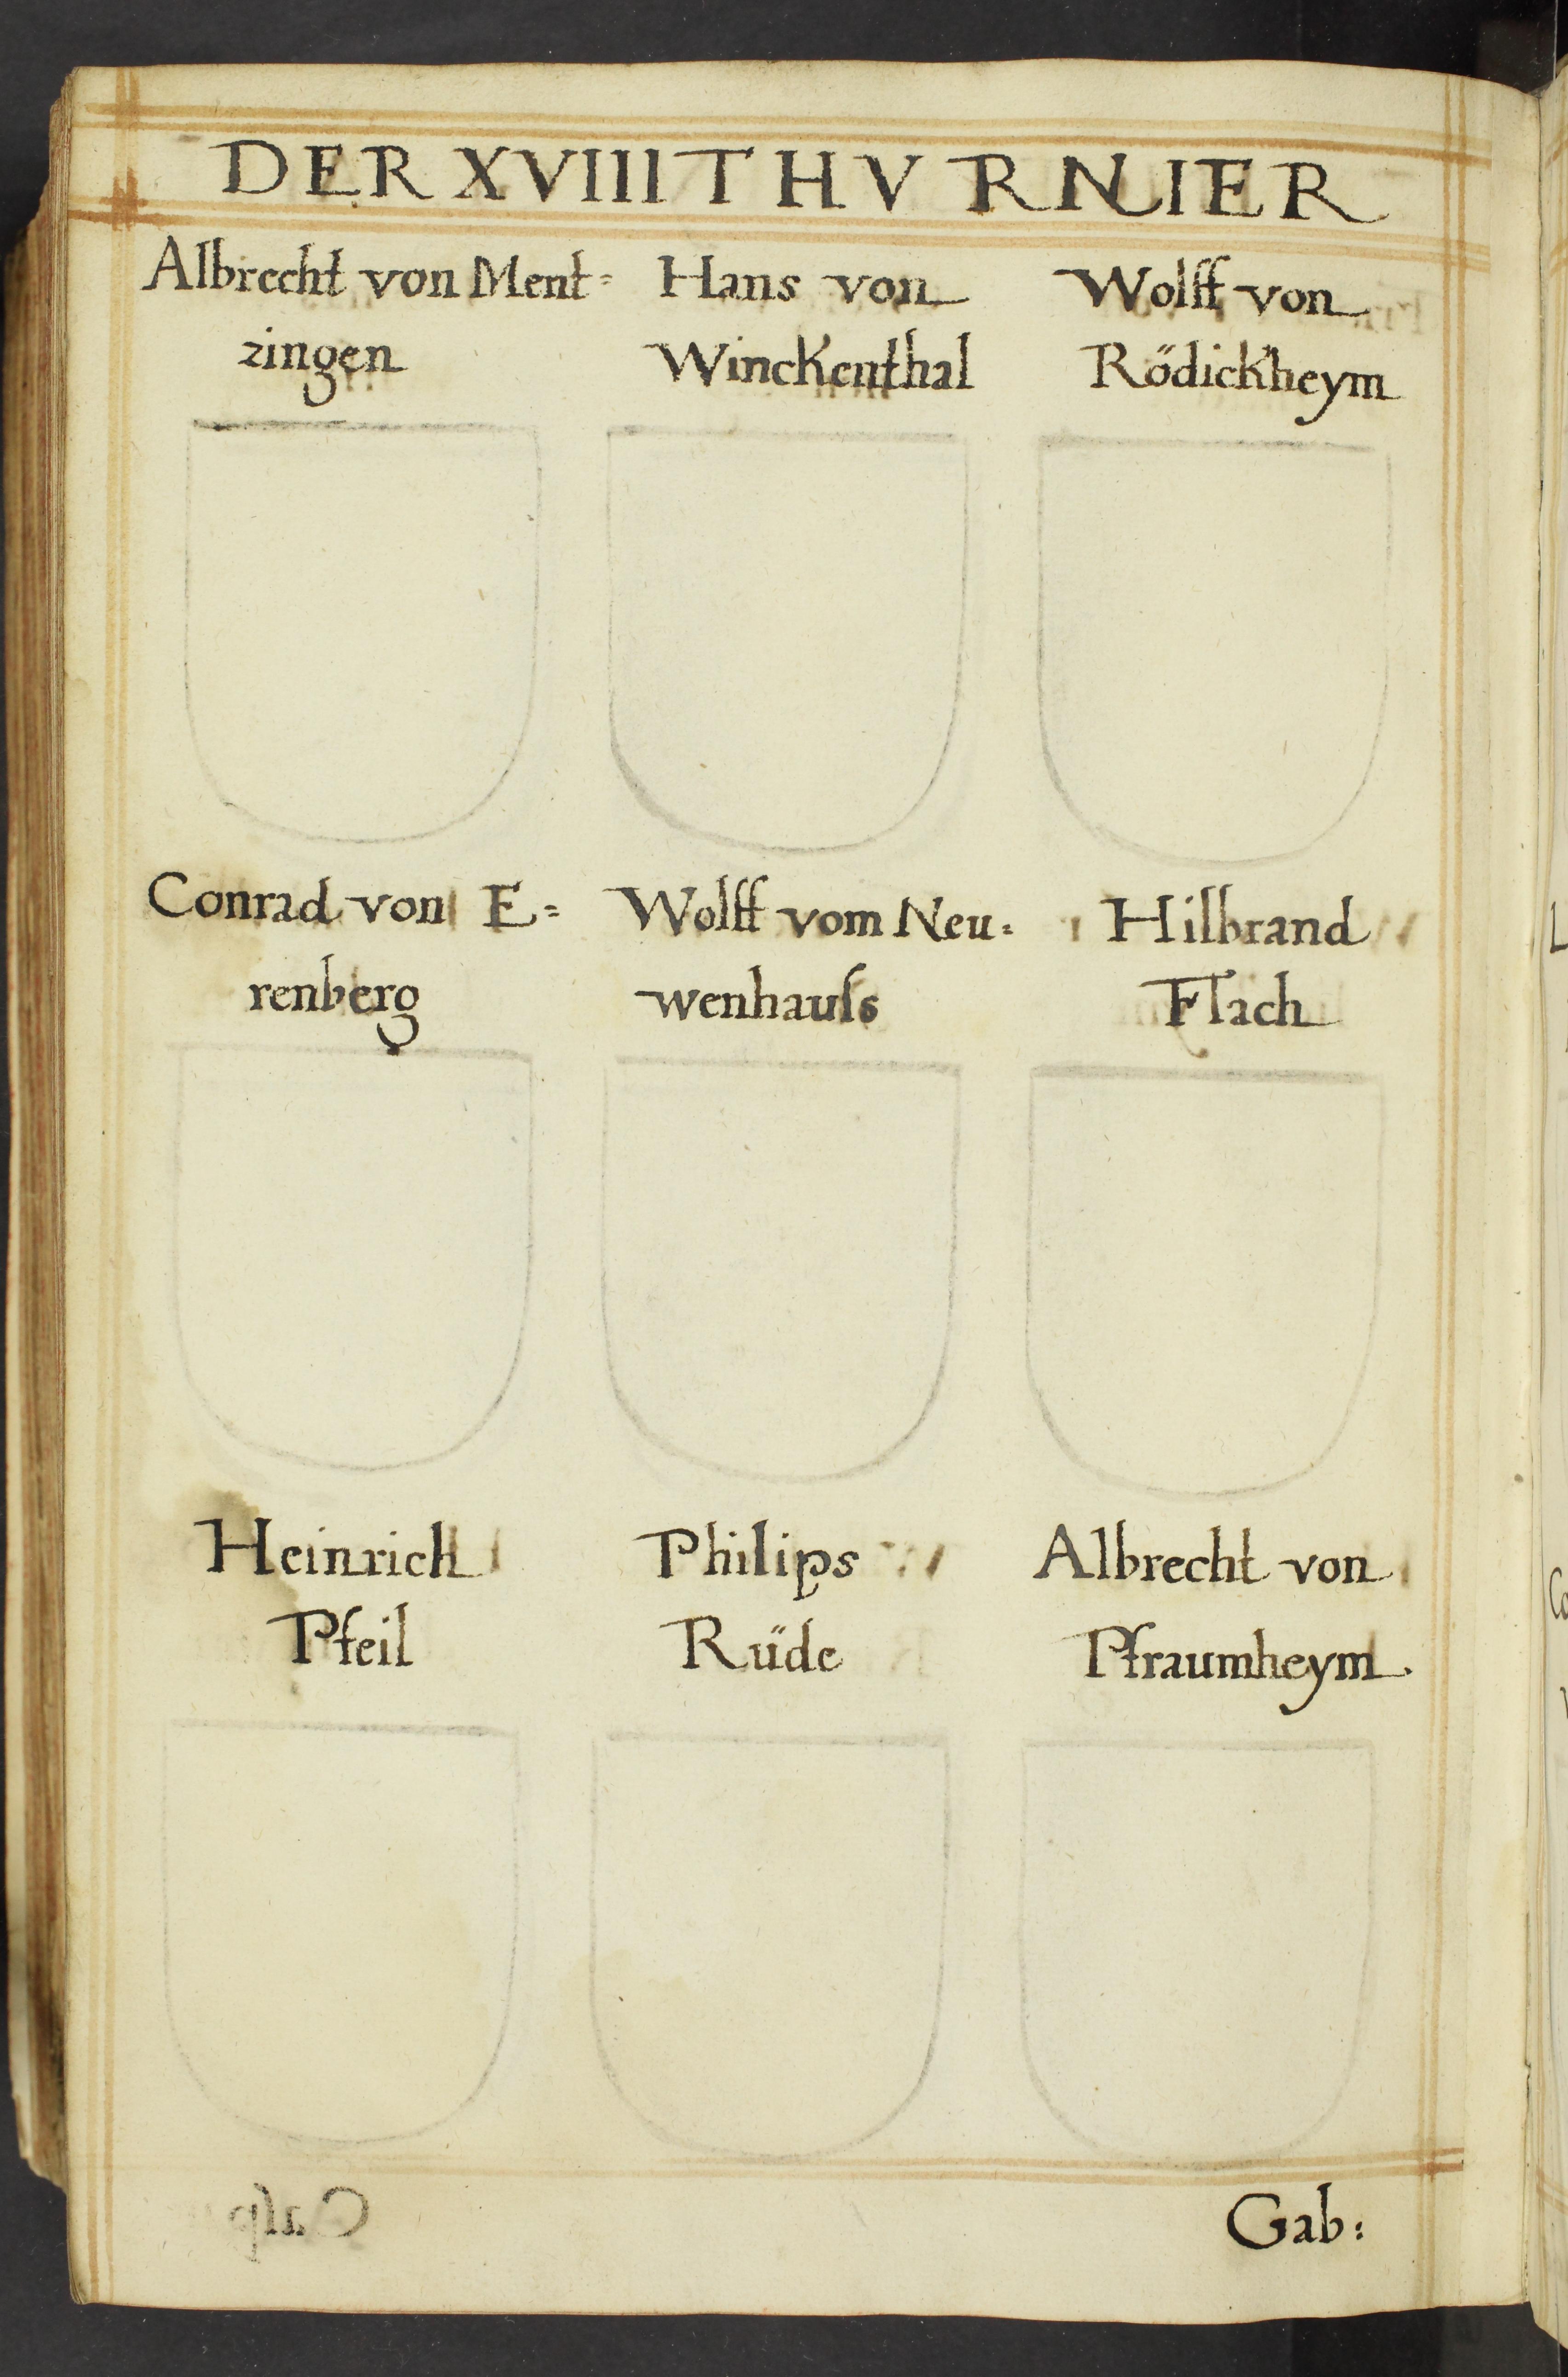 DER XVIIII THVRNIER
Albrecht von Ment=
zingen
Hans von
Winckenthal
Wolff von
Rödickheym
Conrad von E=
renberg
Wolff vom Neu=
wenhauſs
Hilbrand
Flach
Heinrich
Pfeil
Philips
Rüde
Albrecht von
Pfraumheym.
Gab: